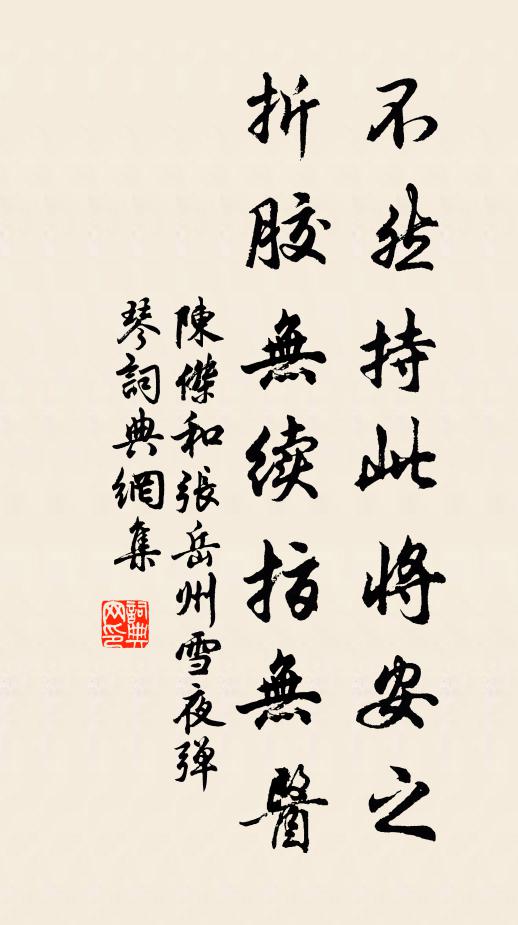 不然持此將安之
折膠無续指無醫
陳傑和張岳州雪夜弹
琴詞典網集
詞典
网印